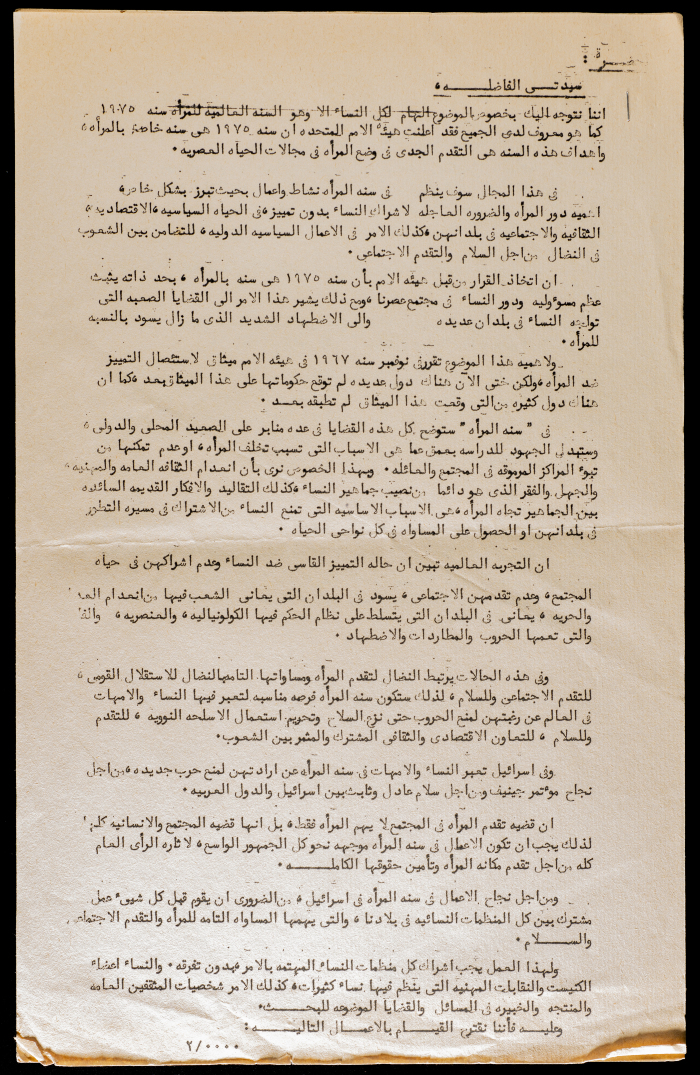 حضرة :
سيدتي الفاضلـــه ،
اننا نتوجه اليك بخصوص الموضوع الهام لكل النساء الا وهو السنه العالميه للمرأه سنه ١٩٧٥
كما هو معروف لدى الجميع فقد اعلنت هيئة الامم المتحده ان سنه ١٩٧٥ هى سنه خاصة بالمرأه ،
واهداف هذه السنه هى التقدم الجدى فى وضع المرأه فى مجالات الحياه العصريه .
فى هذا المجال سوف ينظم فى سنه المرأه نشاط واعمال بحيث تبرز بشكل خاص ،
اهميه دور المرأه والضروره العاجله لاشراك النساء بدون تمييز ، فى الحياه السياسيه ، الاقتصاديه ،
الثقافيه والاجتماعيه فى بلدانهن ، كذلك الامر فى الاعمال السياسيه الدوليه ، للتضامن بين الشعوب
فى النضال من اجل السلام والتقدم الاجتماعى .
ان اتخاذ القرار من قبل هيئه الامم بأن سنه ١٩٧٥ هى سنه بالمرأه ، بحد ذاته يثبت
عظم مسوءوليه ودور النساء فى مجتمع عصرنا ، ومع ذلك يشير هذا الامر الى القضايا الصعبه التى
تواجه النساء فى بلدان عديده والى الاضطهاد الشديد الذى ما زال يسود بالنسبه
للمرأه .
ولاهميه هذا الموضوع تقرر فى نوفمبر سنه ١٩٦٧ فى هيئه الامم ميثاق لاستئصال التمييز
ضد المرأه ، ولكن حتى الآن هناك دول عديده لم توقع حكوماتها على هذا الميثاق بعد ، كما ان
هناك دول كثيره من التى وقعت هذا الميثاق لم تطبقه بعـد .
فى " سنه المرأه " ستوضع كل هذه القضايا فى عده منابر على الصعيد المحلى والدولى ،
وستبدل الجهود للدراسه بعمق عما هى الاسباب التى تسبب تخلف المرأه ، او عدم تمكنها من
تبوء المراكز المرموقه فى المجتمع والعائله . وبهذا الخصوص نرى بأن انعدام الثقافه العامه والمهنيه ،
والجهل والفقر الذى هو دائما من نصيب جماهير النساء ، كذلك التقاليد والافكار القديمه السائده
بين الجماهير تجاه المرأه ، هى الاسباب الاساسيه التى تمنع النساء من الاشتراك فى مسيره التطور
فى بلدانهن او الحصول على المساواه فى كل نواحى الحياه .
ان التجربه العالميه تبين ان حاله التمييز القاسى ضد النساء وعدم اشراكهن فى حياه
المجتمع ، وعدم تقدمهن الاجتماعى ، يسود فى البلدان التى يعانى الشعب فيها من انعدام
والحريه ، يعانى فى البلدان التى يتسلط على نظام الحكم فيها الكولونياليه ، والعنصريه ،
والتى تعمها الحروب والمطاردات والاضطهاد .
وفى هذه الحالات يرتبط النضال لتقدم المرأه ومساواتها التامه بالنضال للاستقلال القومى ،
للتقدم الاجتماعى وللسلام ، لذلك ستكون سنه المرأه فرصه مناسبه لتعبر فيها النساء والامهات
فى العالم عن رغبتهن لمنع الحروب حتى نزع السلاح وتحريم استعمال الاسلحه النوويه ، للتقدم
وللسلام ، للتعاون الاقتصادى والثقافى المشترك والمثمر بين الشعوب .
وفى اسرائيل تعبر النساء والامهات فى سنه المرأه عن ارادتهن لمنع حرب جديده ، من اجل
نجاح موءتمر جينيف ومن اجل سلام عادل وثابت بين اسرائيل والدول العربيه .
ان قضيه تقدم المرأه فى المجتمع لا يهم المرأه فقط ، بل انها قضيه المجتمع والانسانيه كلها
لذلك يجب ان تكون الاعمال فى سنه المرأه موجهه نحو كل الجمهور الواسع ، لاثاره الرأى العام
كله من اجل تقدم مكانه المرأه وتأمين حقوقها الكاملـــه .
ومن اجل نجاح الاعمال فى سنه المرأه فى اسرائيل ، من الضرورى ان يقوم قبل كل شيىء عمل
مشترك بين كل المنظمات النسائيه فى بلادنا ، والتى يهمها المساواه التامه للمرأه والتقدم الاجتماعى
والســـلام .
ولهذا العمل يجب اشراك كل منظمات النساء المهتمه بالامر ، بدون تفرقه . والنساء اعضاء
الكنيست والنقابات المهنيه التى ينظم فيها نساء كثيرات ، كذلك الامر شخصيات المثقفين العامه
والمنتجه والخبيره فى المسائل والقضايا الموضوعه للبحـث .
وعليـه فأننا نقترح القيـــام بالاعمال التاليـــه :
٢/٠٠٠٠